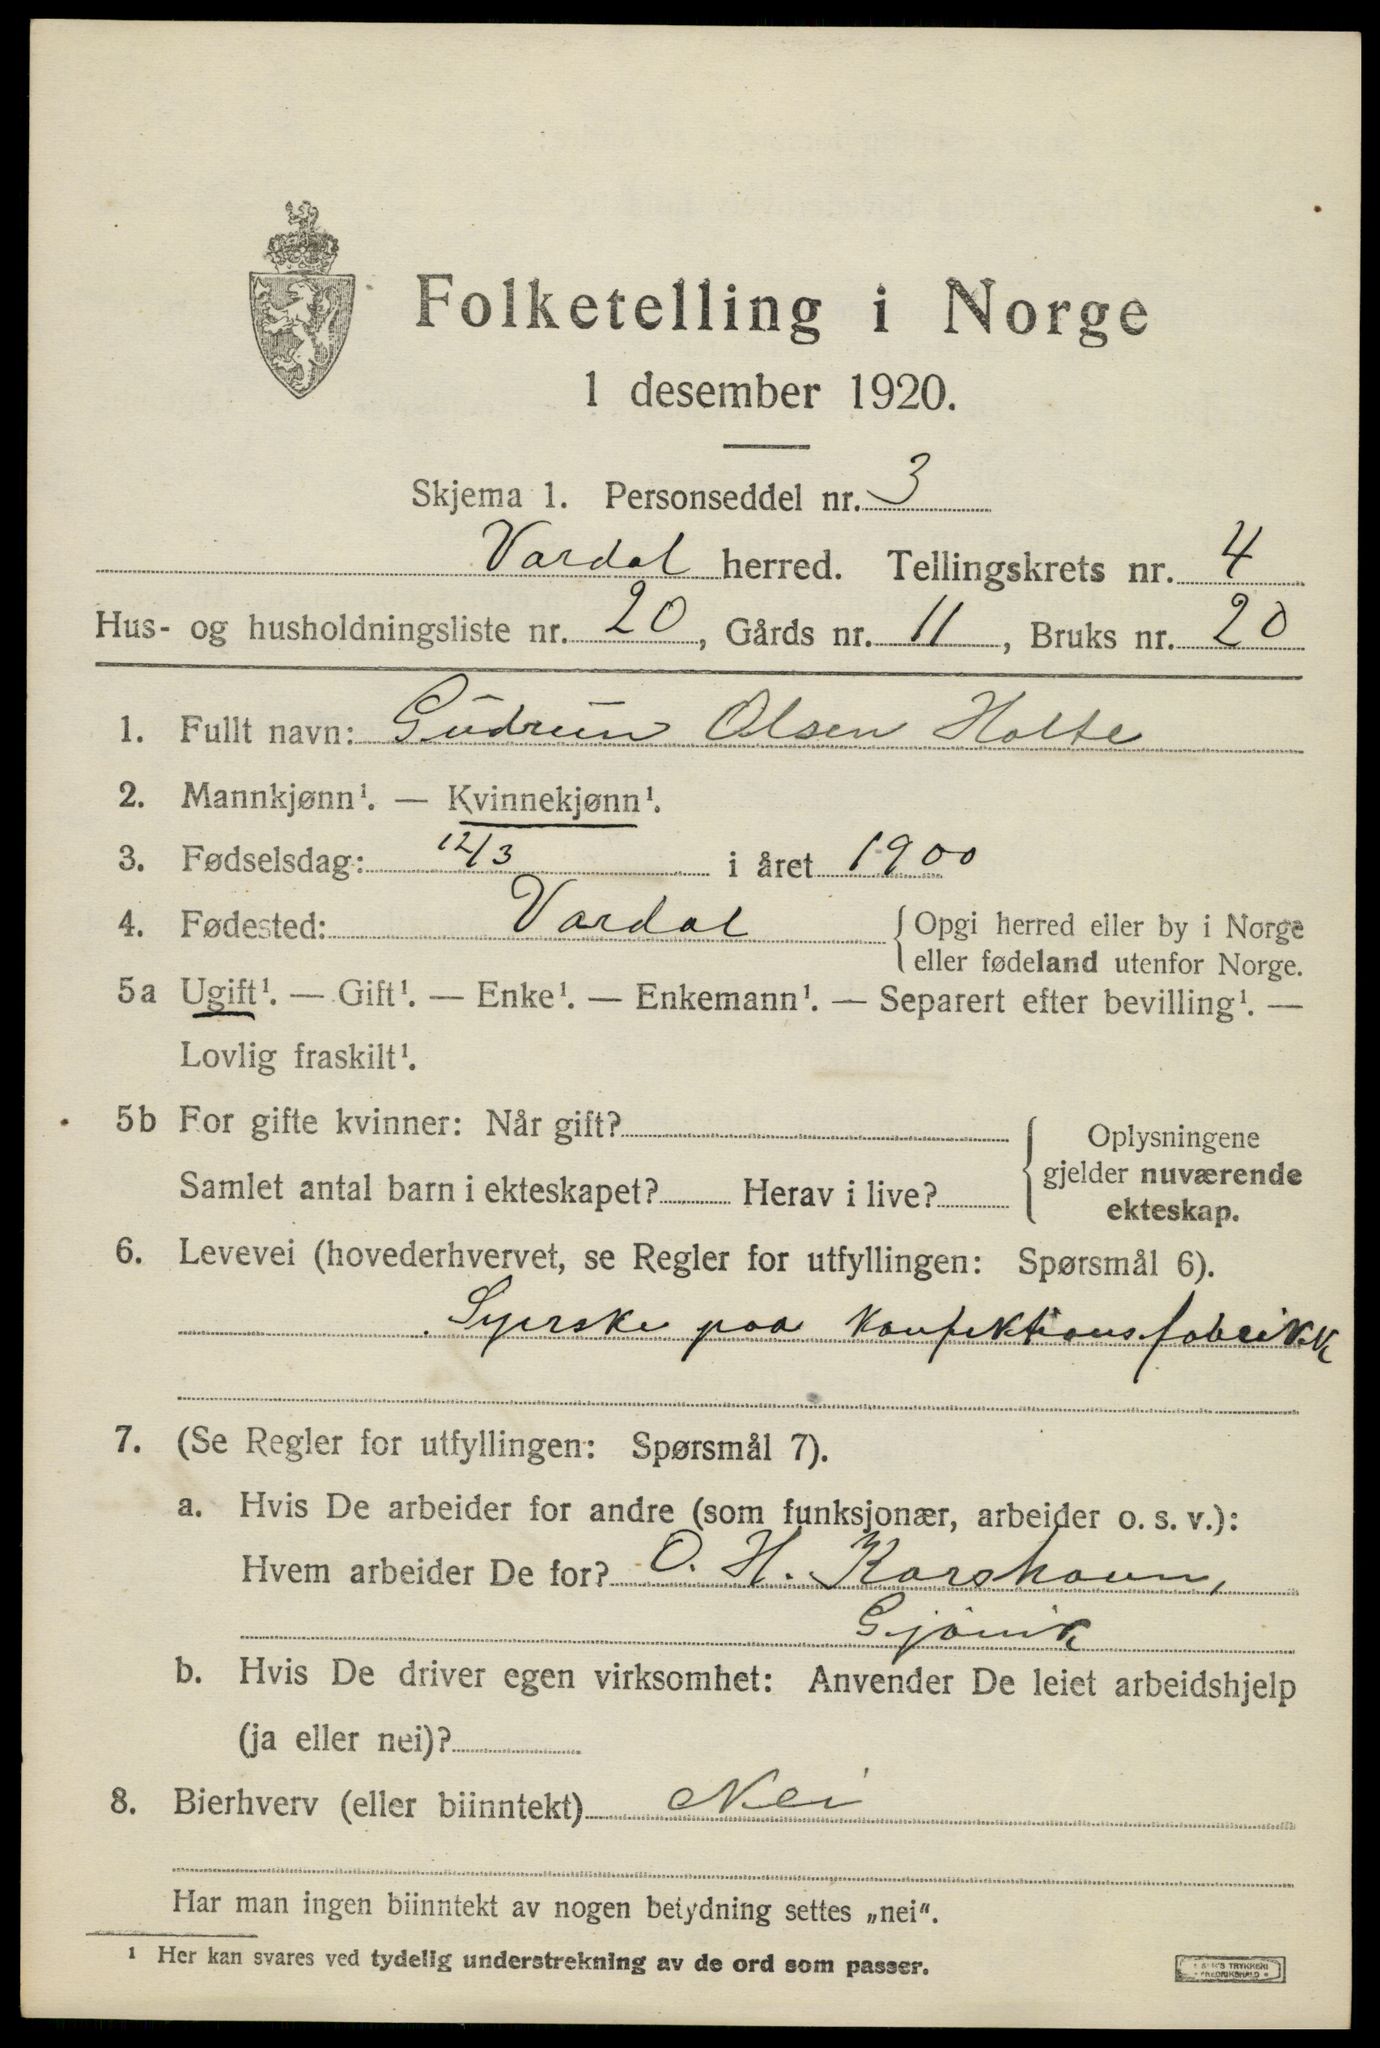 Folketelling i Norge
1 desember 1920.
Skjema 1. Personseddel nr. 3
Vardal herred. Tellingskrets nr. 4
Hus- og husholdningsliste nr. 20, Gårds nr. 11, Bruks nr. 20
1. Fullt navn: Gudrun Olsen Holte
2. Mannkjønn¹. — Kvinnekjønn¹.
3. Fødselsdag: 12/3 i året 1900
4. Fødested: Vardal { Opgi herred eller by i Norge
eller fødeland utenfor Norge.
5a Ugift¹. — Gift¹. — Enke¹. — Enkemann¹. — Separert efter bevilling¹. —
Lovlig fraskilt¹.
5b For gifte kvinner: Når gift?
Samlet antal barn i ekteskapet? Herav i live?
{ Oplysningene
gjelder nuværende
ekteskap.
6. Levevei (hovederhvervet, se Regler for utfyllingen: Spørsmål 6).
Syerske paa Konfektionsfabrikk
7. (Se Regler for utfyllingen: Spørsmål 7).
a. Hvis De arbeider for andre (som funksjonær, arbeider o. s. v.):
Hvem arbeider De for? O. H. Korshavn,
Gjøvik
b. Hvis De driver egen virksomhet: Anvender De leiet arbeidshjelp
(ja eller nei)?
8. Bierhverv (eller biinntekt) Nei
Har man ingen biinntekt av nogen betydning settes „nei“.
¹ Her kan svares ved tydelig understrekning av de ord som passer.
TRYKKERI
FREDRIKSHALD